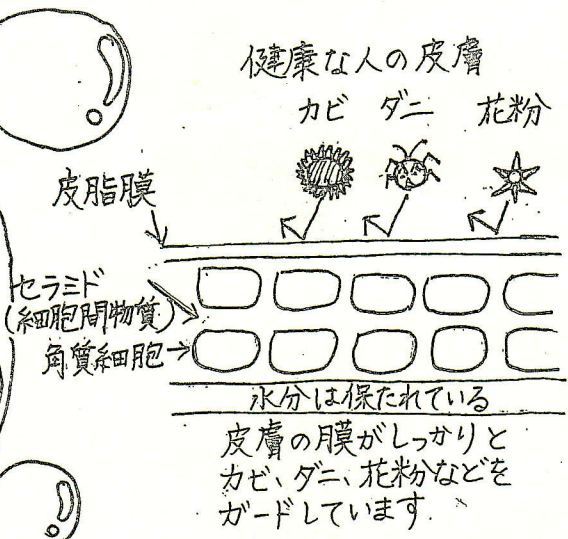 健康な人の皮膚
カビ ダニ 花粉
皮脂膜
セラミド
(細胞間物質)
角質細胞
水分は保たれている
皮膚の膜がしっかりと
カビ、ダニ、花粉などを
ガードしています.